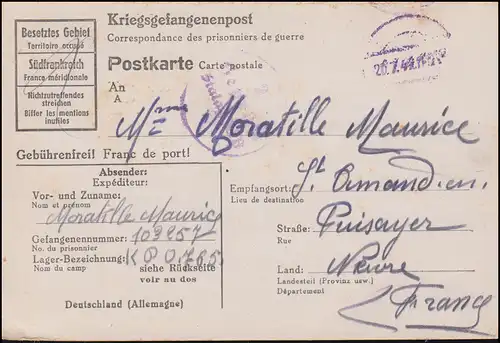 Besetztes Gebiet
Territoire occupé
Südfrankreich
France méridionale
Nichtzutreffendes
streichen
Biffer les mentions
inutiles
Kriegsgefangenenpost
Correspondance des prisonniers de guerre
Postkarte Carte postale
An
A
Mme Moratille Maurice
Gebührenfrei! Franc de port!
Absender:
Expéditeur:
Vor- und Zuname:
Nom et prénom
Moratille Maurice
Gefangenennummer: 103257
No. du prisonnier
Lager-Bezeichnung:
Nom du camp
siehe Rückseite
voir au dos
Deutschland (Allemagne)
Empfangsort: St Amand en
Lieu de destination
Straße: Puisayer
Rue
Land: Nièvre
Landesteil (Provinz usw.)
Département
France
Stalag